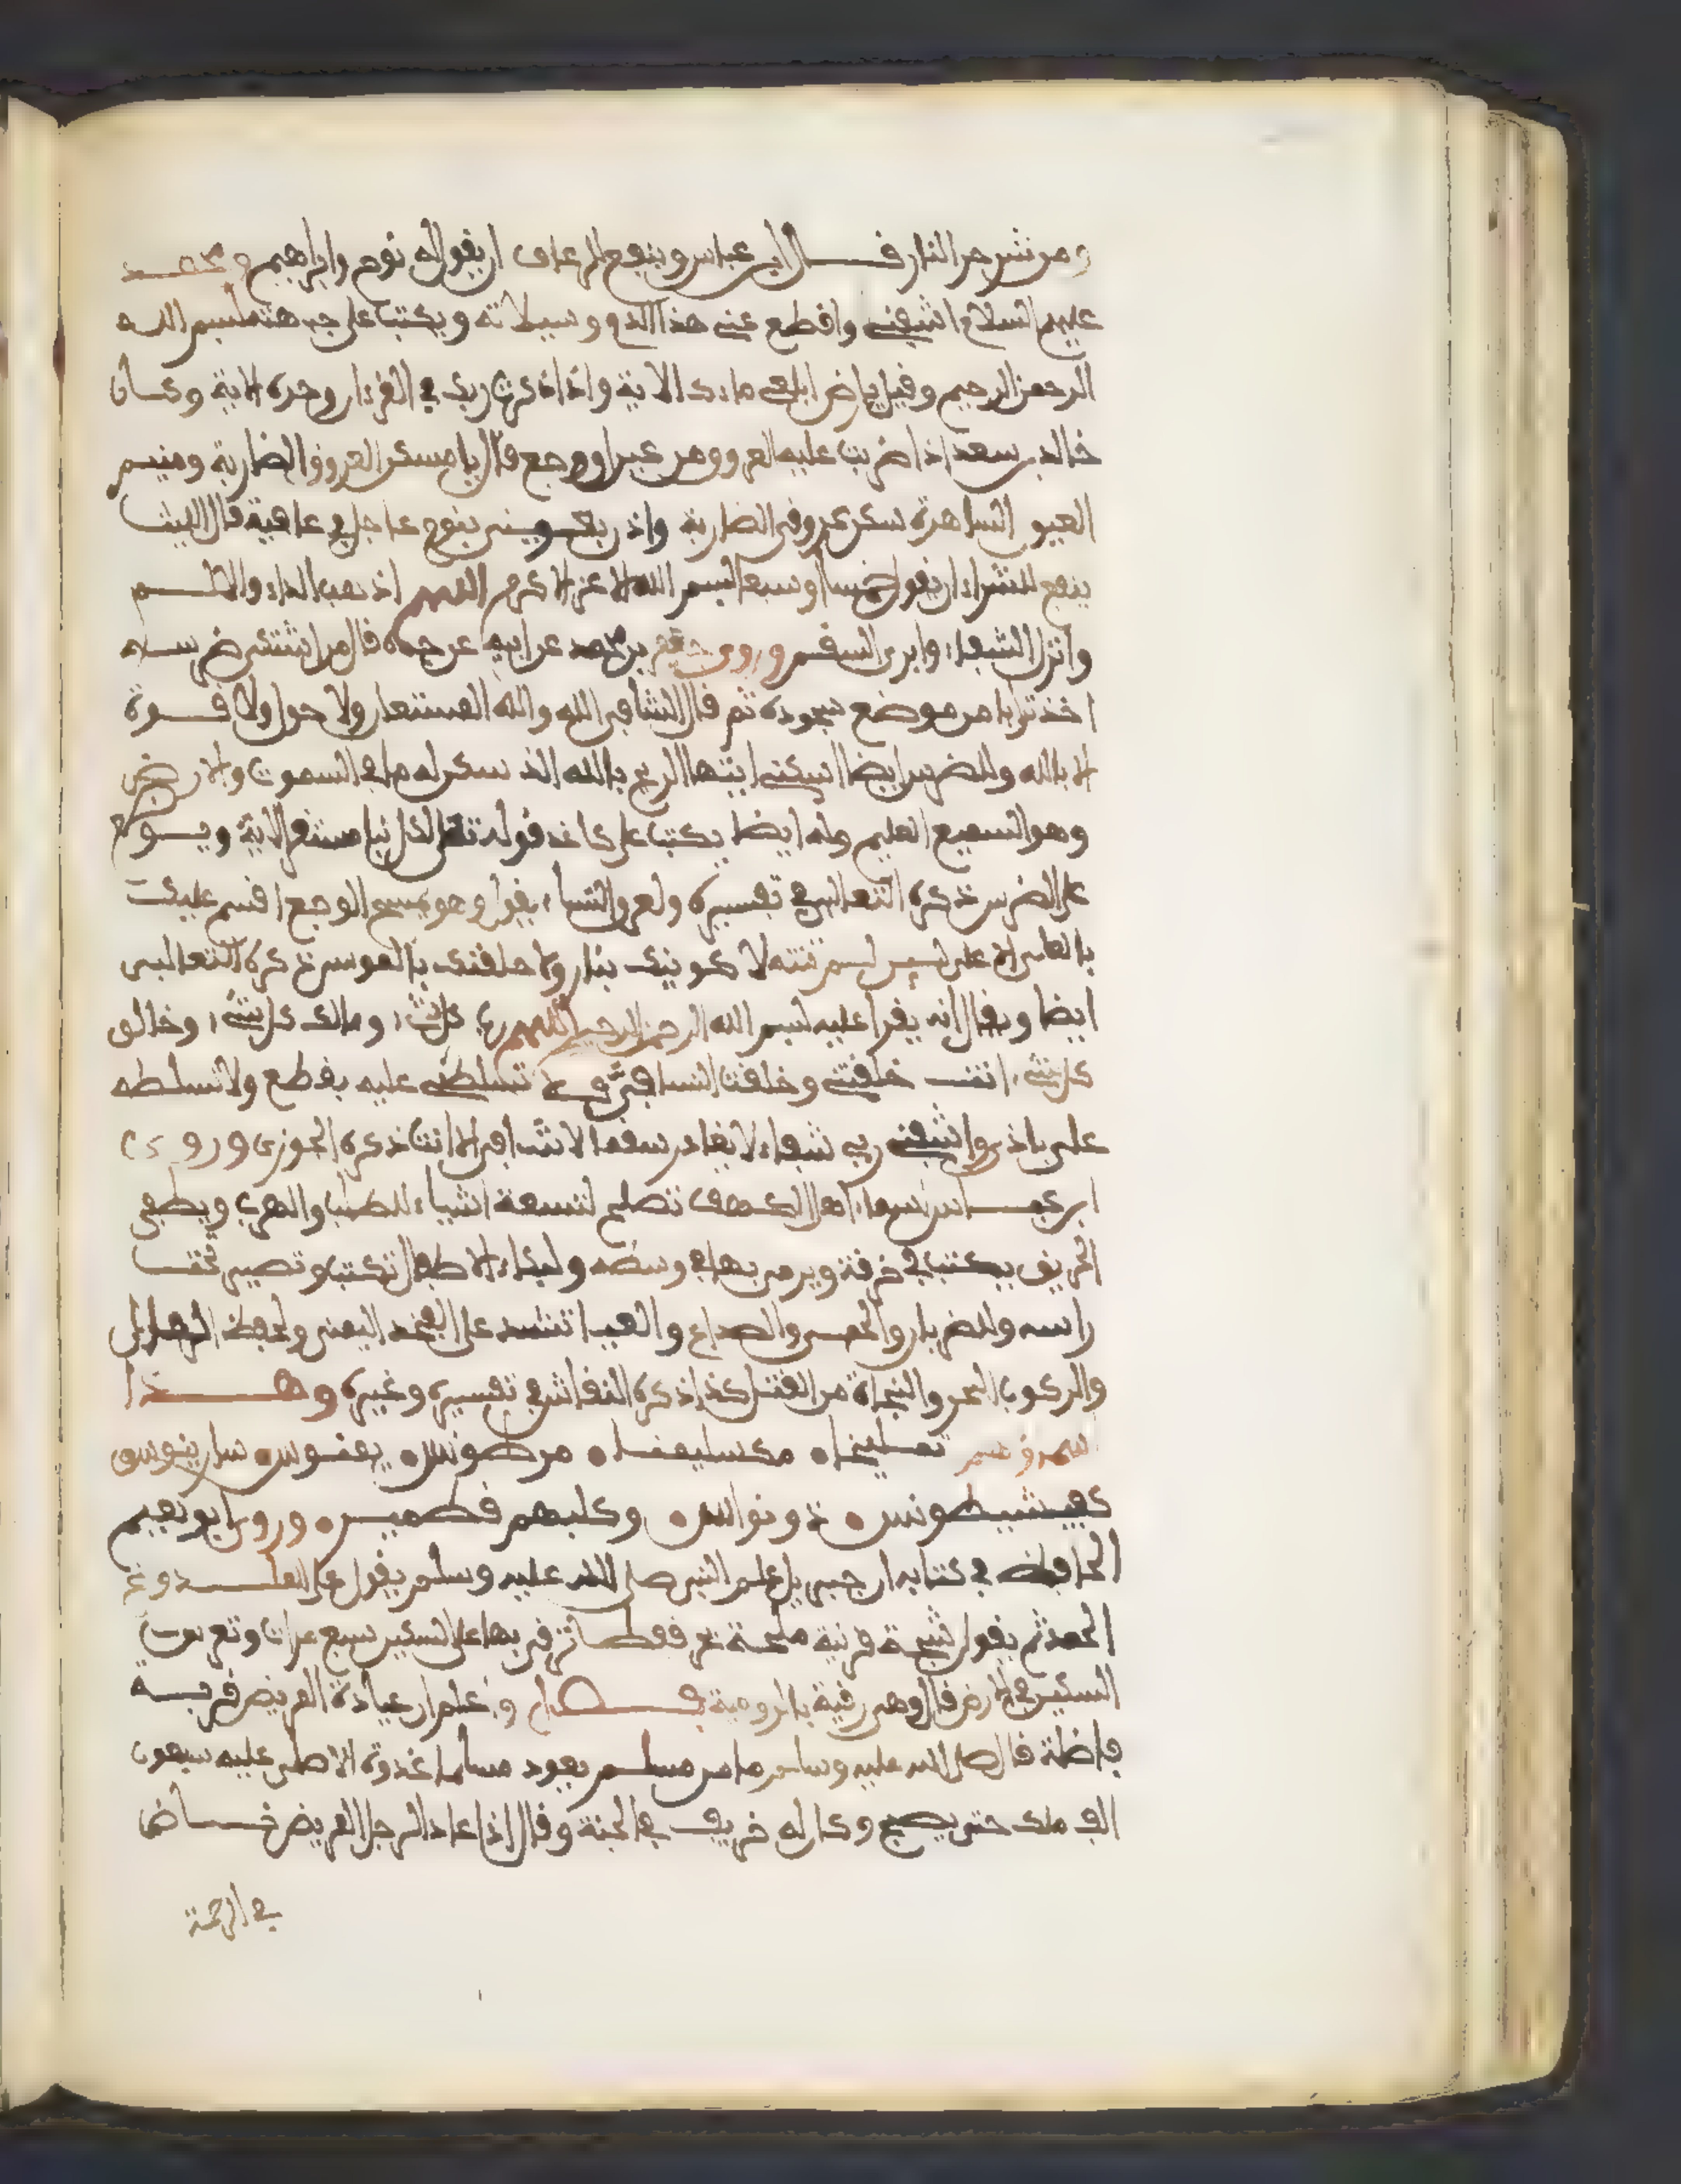 ومن شر حر النار قال ابن عباس وينفع الرعاف ان يقول له نوح وابراهيم ومحمد
عليهم السلام اشفني واقطع عني هذا الدم وسيلانه ويكتب على جبهته بسم الله
الرحمن الرحيم وقيل يا ارض ابلعي ماءك الاية واذا ذكرت ربك في القرءان وحده الاية وكان
خالد بن سعد اذا ضربت عليه العروق من عين او وجع قال يا مسكن العروق الضاربة ومنيم
العيون الساهرة سكن عروقي الضاربة واذن بعيوني بنوم عاجل في عافية قال الليث
ينفع للنشرة ان يقول خمسا او سبعا بسم الله الاعز الاكرم اللهم اذهب الداء والالم
وانزل الشفاء وابرئ السقم وروى جعفر بن محمد عن ابيه عن جده قال من اشتكى ضرسه
اخذ ترابا من موضع سجوده ثم قال الشافي الله والله المستعان ولا حول ولا قوة
الا بالله وللضرس ايضا اسكني ايتها الريح بالله الذي سكن له ما في السموت والارض
وهو السميع العليم وله ايضا يكتب على كاغد قوله تعالى لكل نبإ مستقر الاية ويوضع
على الضرس ذكره الثعالبي في تفسيره ولعرق النسا يقول وهو يمسح الوجع اقسم عليك
ايضا ويقال انه يقرا عليه بسم الله الرحمن الرحيم اللهم رب كل شيء ومالك كل شيء وخالق
كل شيء انت خلقتني وخلقت النسا في فلا تسلطني عليه بقطع ولا تسلطه
علي باذى واشفني ربي شفاء لا يغادر سقما لا شافي الا انت ذكره الجوزي وروى
ابن عباس اسماء اهل الكهف تصلح لتسعة اشياء للطلب والهرب ويطفى
الحريق يكتب في خرقة ويرمى بها في وسطه ولبكاء الاطفال تكتب وتصير تحت
راسه وللضربان والحمى والصداع والغب تشد على الفخذ اليمنى ولحفظ المال
والركوب البحر والنجاة من القتل كذا ذكره النقاش في تفسيره وغيره وهذا
تمليخا مكسلمينا مرطونس يمنوس سارينوس
كفيشيطونس ذو نوانس وكلبهم قطمير وروى ابو نعيم
الحافظ في كتابه ان جبريل علم النبي صلى الله عليه وسلم يقول على الملدوغ
الحمد ثم يقول شجة قرنية ملحة بحر قفطا ثم يرقي بها على السكين سبع مرات وتغرس
السكين في الارض قال وهي رقية بالرومية فصل واعلم ان عيادة المريض قربة
فاضلة قال صلى الله عليه وسلم ما من مسلم يعود مسلما غدوة الا صلى عليه سبعون
الف ملك حتى يصبح وكان له خريف في الجنة وقال اذا عاد الرجل المريض خاض
في الرحمة